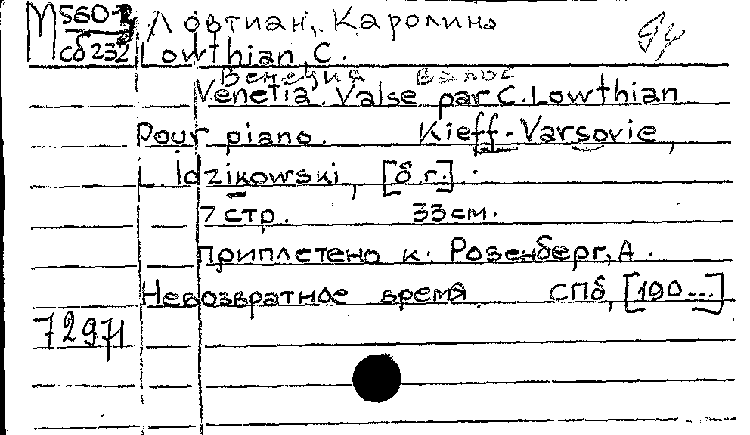 М 560-3 Ловтиан, Каролина
сб 232 Lowthian, C.
Венеция Вальс
Venetia. Valse par C. Lowthian
pour piano. Kieff-Varsovie,
L. Idzikowski, [б.г.].
7 стр. 33 см.
Приплетено к: Розенберг, А.
Невозвратное время. СПб, [190...]
72971